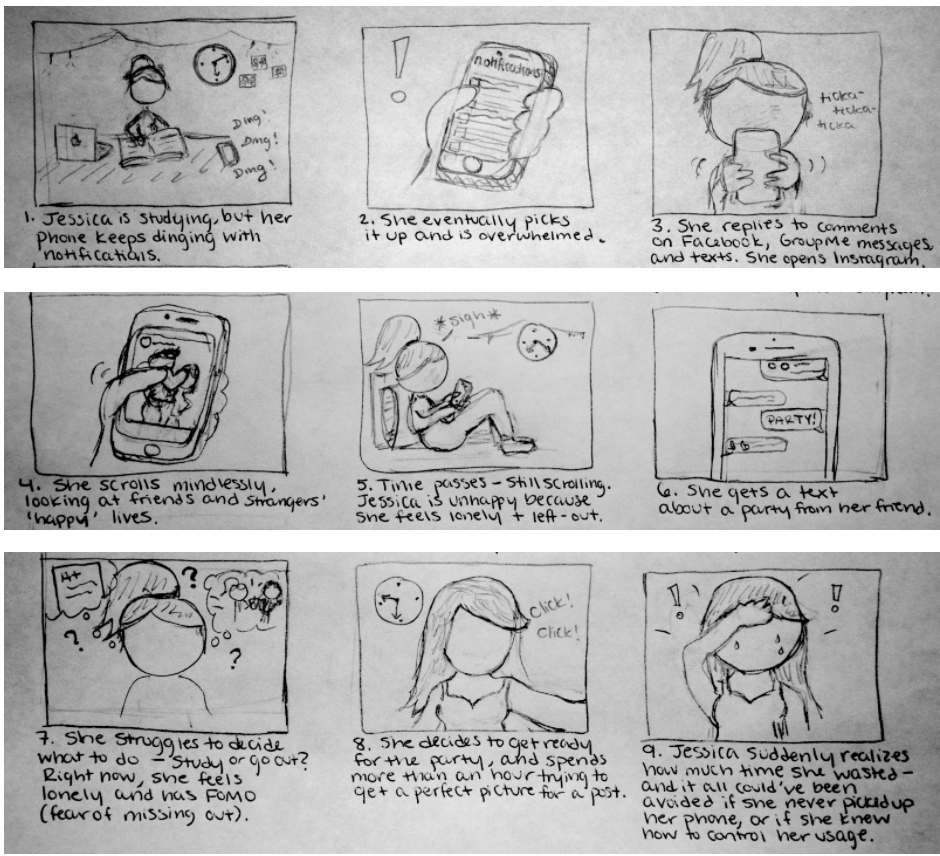 Ding!
Ding!
Ding!
1. Jessica is studying, but her
phone keeps dinging with
notificatials.
!
notifications
2. She eventually picks
it up and is overwhelmed.
ticka-
ticka-
ticka
3. She replies to comments
on Facebook, GroupMe messages
and texts. She opens Instagram.
4. She scrolls mindlessly,
looking at friends and strangers'
'happy' lives.
*sigh*
5. Time passes - still scrolling.
Jessica is unhappy because
she feels lonely + left-out.
PARTY!
6. She gets a text
about a party from her friend.
A+
?
?
?
7. She struggles to decide
what to do - Study or go out?
Right now, she feels
lonely and has FOMO
(fear of missing out).
Click!
Click!
8. She decides to get ready
for the party, and spends
more than an hour trying to
get a perfect picture for a post.
!
!
9. Jessica suddenly realizes
how much time she wasted -
and it all could've been
avoided if she never picked up
her phone, or if she knew
how to control her usage.